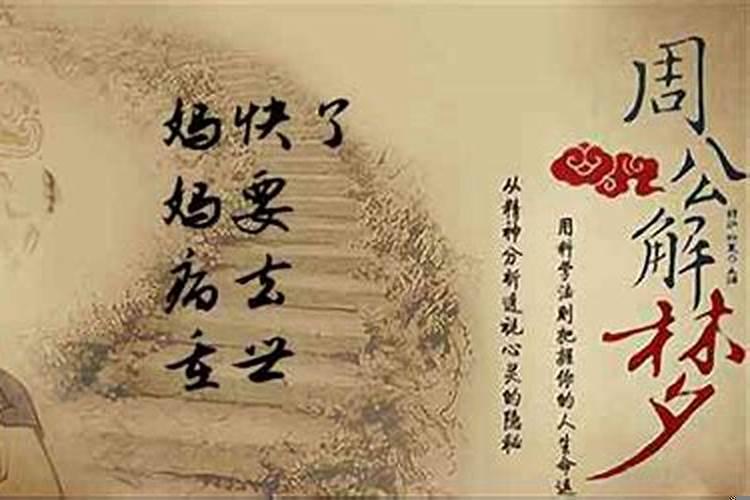 周公解梦
用科学法则把握你的人生命运
从精神分析道说心灵的隐秘
妈妈病重
快要去世
了